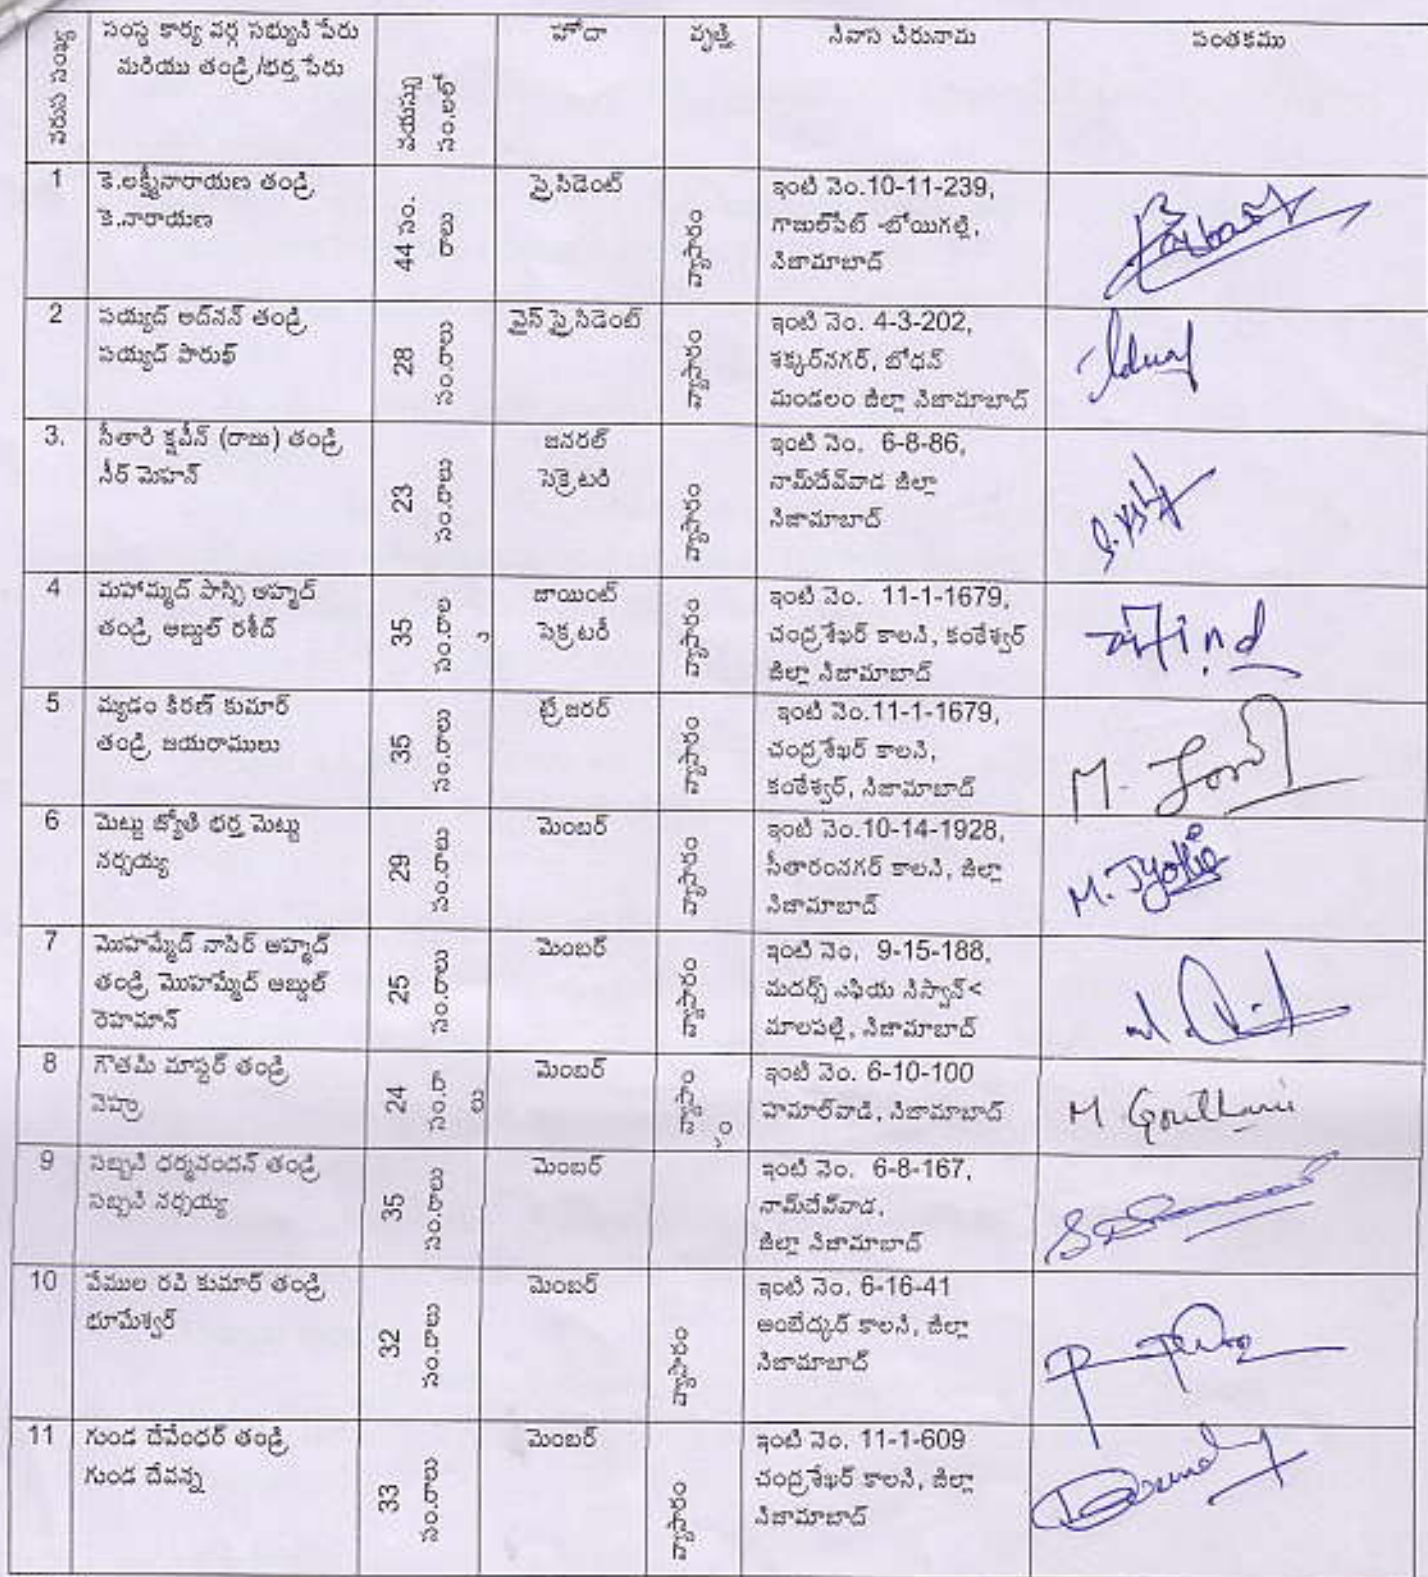 వరుస సంఖ్య
సంస్థ కార్య వర్గ సభ్యుని పేరు
మరియు తండ్రి /భర్త పేరు
వయస్సు
సం.లలో
హోదా
వృత్తి
నివాస చిరునామ
సంతకము
1
కె.లక్ష్మీనారాయణ తండ్రి
కె.నారాయణ
44 సం.
రాలు
ప్రెసిడెంట్
వ్యాపారం
ఇంటి నెం.10-11-239,
గాజుల్‌పేట్ -బోయిగల్లి,
నిజామాబాద్
2
సయ్యద్ అద్‌నన్ తండ్రి
సయ్యద్ పారుఖ్
28
సం.రాలు
వైస్ ప్రెసిడెంట్
వ్యాపారం
ఇంటి నెం. 4-3-202,
శక్కర్‌నగర్, బోధన్
మండలం జిల్లా నిజామాబాద్
3.
సీతారి క్షవీన్ (రాజు) తండ్రి
నీర్ మెహన్
23
సం.రాలు
జనరల్
సెక్రెటరి
వ్యాపారం
ఇంటి నెం. 6-8-86,
నామ్‌దేవ్‌వాడ జిల్లా
నిజామాబాద్
4
మహమ్మద్ అహ్మద్
తండ్రి అబ్దుల్ రశీద్
35
సం.రాలు
జాయింట్
సెక్రటరీ
వ్యాపారం
ఇంటి నెం. 11-1-1679,
చంద్రశేఖర్ కాలని, కంఠేశ్వర్
జిల్లా నిజామాబాద్
5
మ్యడం కిరణ్ కుమార్
తండ్రి జయరాములు
35
సం.రాలు
ట్రేజరర్
వ్యాపారం
ఇంటి నెం.11-1-1679,
చంద్రశేఖర్ కాలని,
కంఠేశ్వర్, నిజామాబాద్
M.
6
మెట్టు జ్యోతి భర్త మెట్టు
నర్సయ్య
29
సం.రాలు
మెంబర్
వ్యాపారం
ఇంటి నెం.10-14-1928,
సీతారంనగర్ కాలని, జిల్లా
నిజామాబాద్
M. Jyothi
7
మొహమ్మేద్ నాసిర్ అహ్మద్
తండ్రి మొహమ్మేద్ అబ్దుల్
రెహమాన్
25
సం.రాలు
మెంబర్
వ్యాపారం
ఇంటి నెం. 9-15-188,
మదర్స్ నిస్వాన్<
మాలపల్లి, నిజామాబాద్
8
గౌతమి మాస్టర్ తండ్రి
నెహ్రు
24
సం.రాలు
మెంబర్
వ్యాపారం
ఇంటి నెం. 6-10-100
హమాల్‌వాడి, నిజామాబాద్
M Gouthami
9
సబ్బని ధర్మనందన్ తండ్రి
సబ్బని నర్సయ్య
35
సం.రాలు
మెంబర్
ఇంటి నెం. 6-8-167,
నామ్‌దేవ్‌వాడ,
జిల్లా నిజామాబాద్
10
వేముల రవి కుమార్ తండ్రి
భూమేశ్వర్
32
సం.రాలు
మెంబర్
వ్యాపారం
ఇంటి నెం. 6-16-41
అంబేద్కర్ కాలని, జిల్లా
నిజామాబాద్
11
గుండ దేవేందర్ తండ్రి
గుండ దేవన్న
33
సం.రాలు
మెంబర్
వ్యాపారం
ఇంటి నెం. 11-1-609
చంద్రశేఖర్ కాలని, జిల్లా
నిజామాబాద్